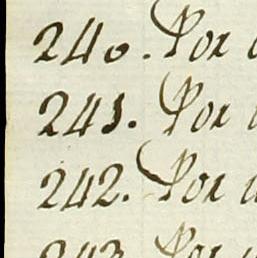 240. Por
241. Por
242. Por
243. Por